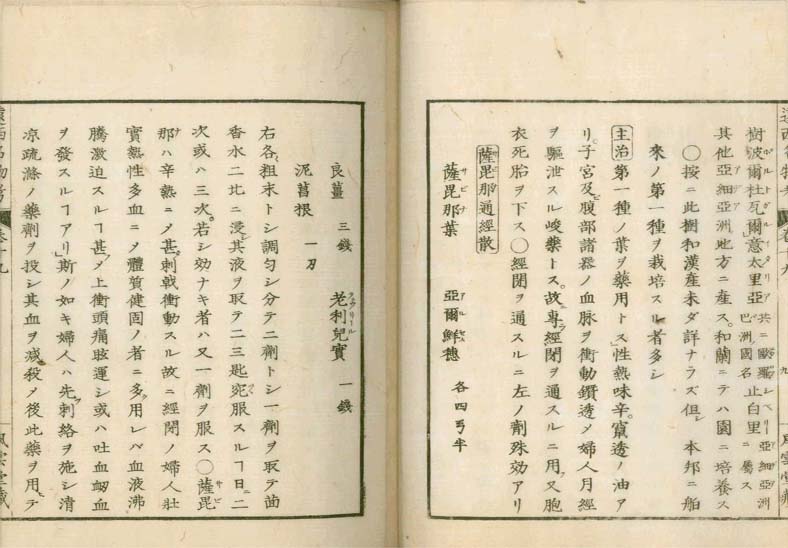 樹波爾杜瓦爾意太里亞共ニ歐羅巴洲國名止白里亞細亞洲ニ屬ス
其他亞細亞洲地方ニ産ス。和蘭ニテハ園ニ培養ス
○按ニ此樹和漢産未ダ詳ナラズ但シ本邦ニ舶
來ノ第一種ヲ栽培スル者多シ
主治第一種ノ葉ヲ藥用トス」性熱味辛。竄透ノ油ア
リ。子宮及ヒ腹部諸器ノ血脉ヲ衝動鑽透メ婦人月經
ヲ驅泄スル峻藥トス。故ニ專ラ經閉ヲ通スルニ用ヒ又胞
衣死胎ヲ下ス○經閉ヲ通スルニ左ノ劑殊効アリ
薩毘那通經散
薩毘那葉 亞爾鮮穗 各四弓半
良薑 三錢 老利兒實 一錢
泥菖根 一刃
右各粗末トシ調勻シ分テ二劑トシ一劑ヲ取テ茴
香水二比ニ浸其液ヲ取テ二三匙宛服スルヿ日ニ二
次或ハ三次。若シ効ナキ者ハ又一劑ヲ服ス○薩毘
那ハ辛熱ニメ甚タ刺戟衝動スル故ニ經閉ノ婦人壯
實熱性多血ニメ體質健固ノ者ニ多ク用レバ血液沸
騰激迫スルヿ甚メ上衝頭痛眩運シ或ハ吐血衄血
ヲ發スルヿアリ」斯ノ如キ婦人ハ先ツ刺絡ヲ施シ清
凉疏滌ノ藥劑ヲ投シ其血ヲ減殺メ後此藥ヲ用ヒテ
卷十九
風雲堂藏